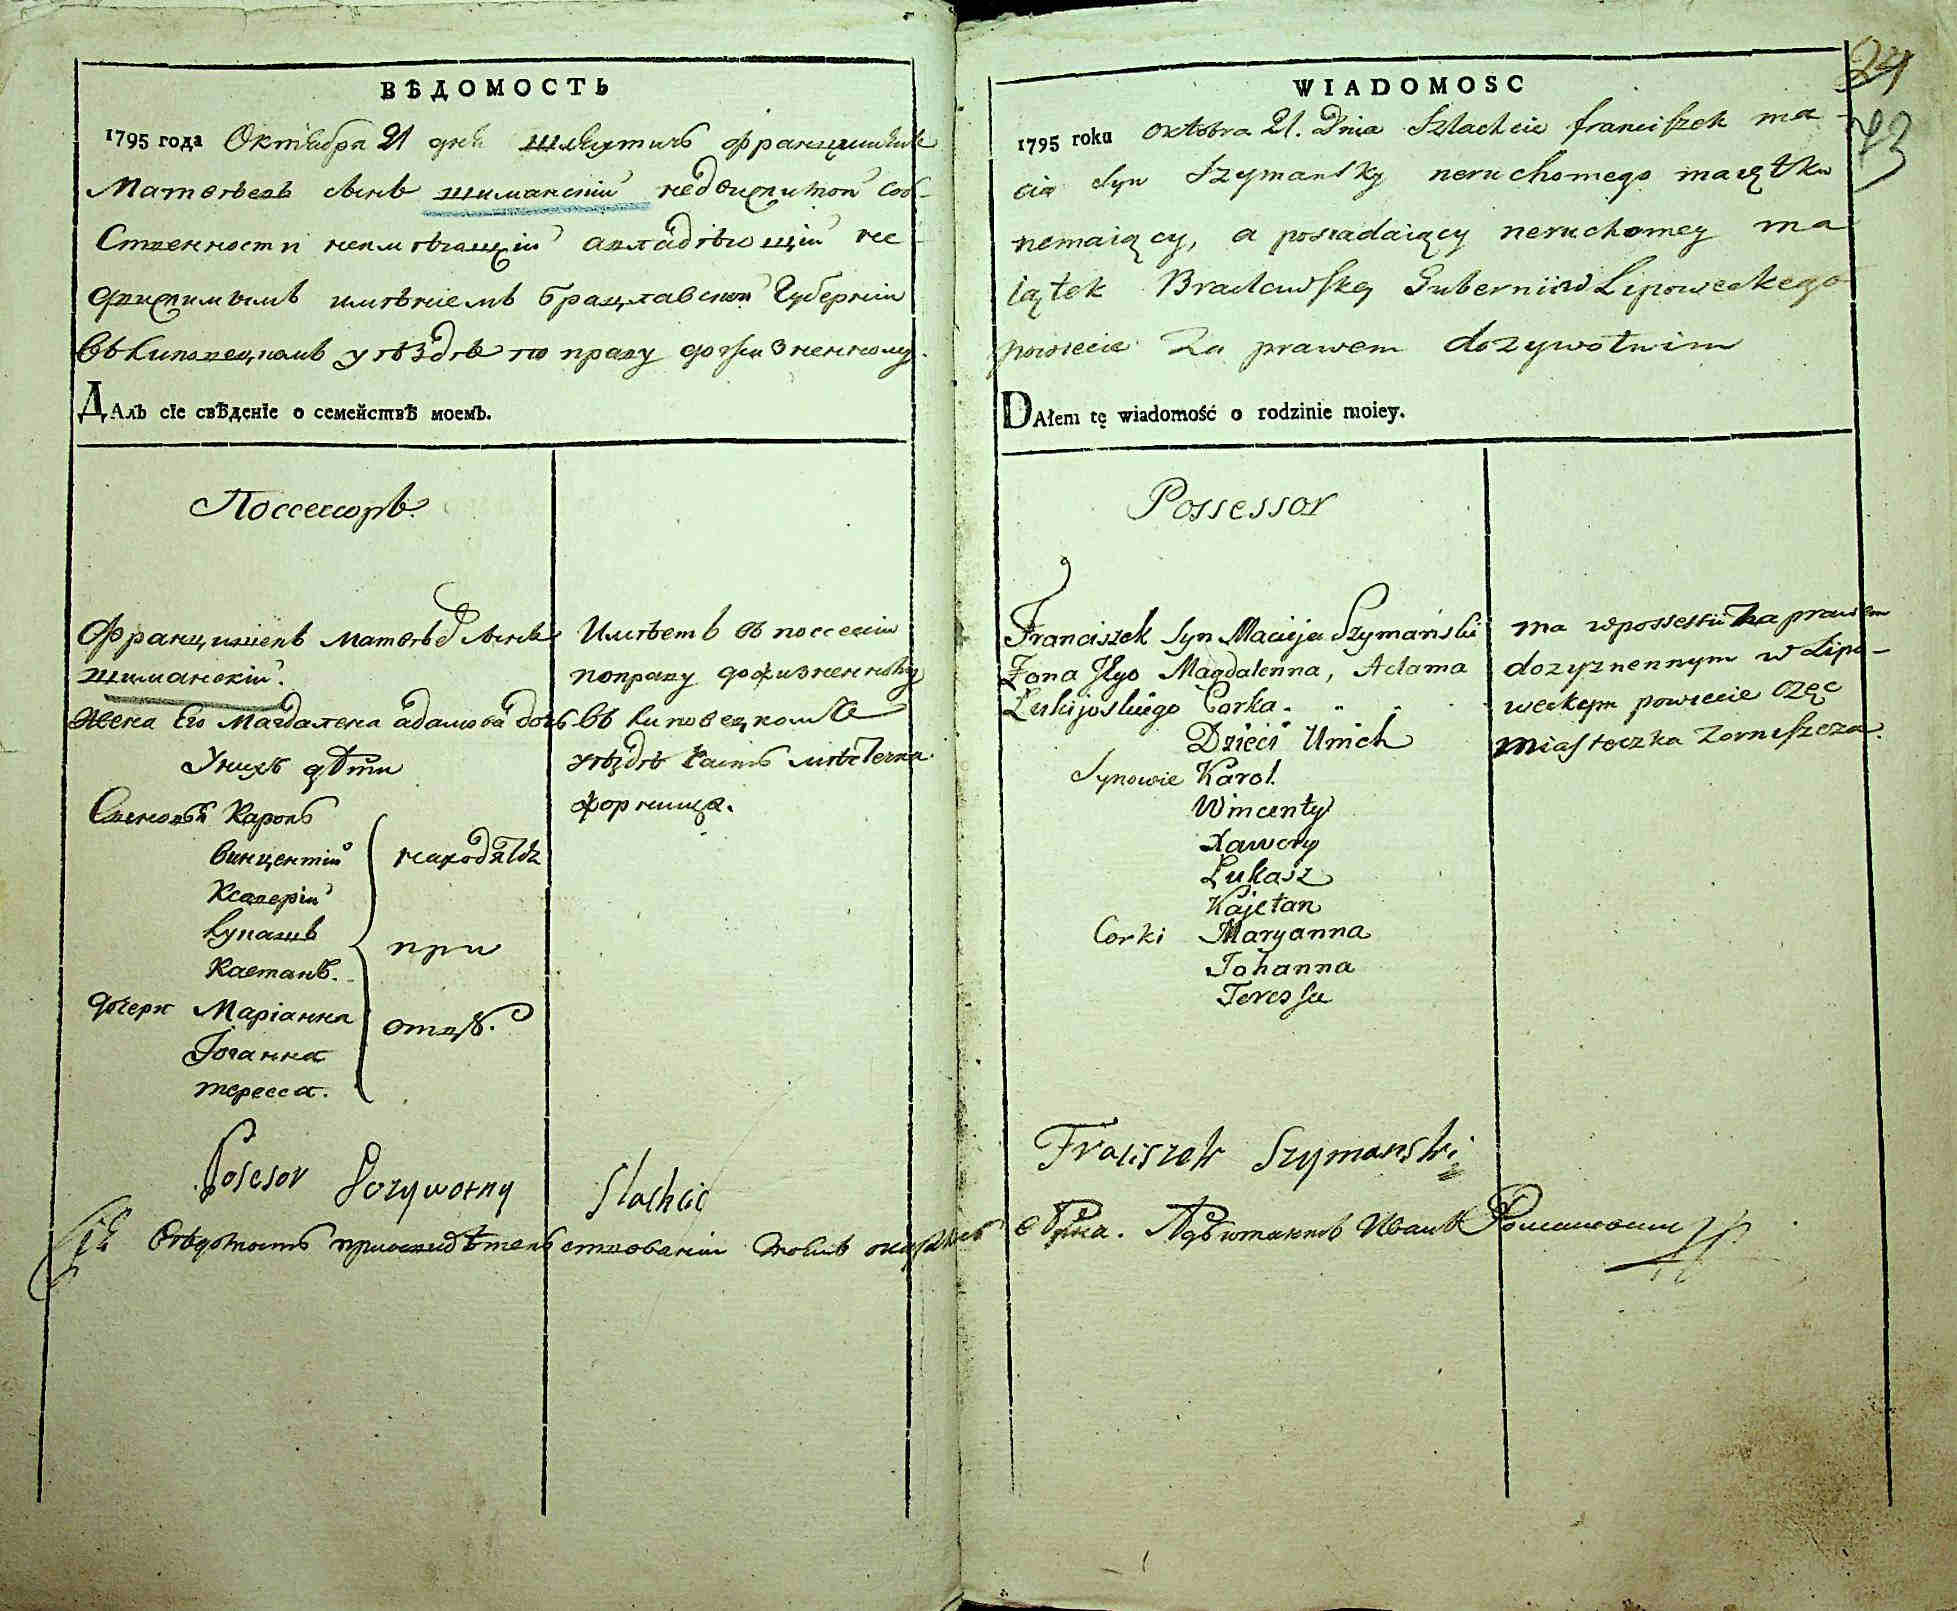 ВѢДОМОСТЬ
1795 года Октября 21 дня шляхтичъ Францишекъ
Матвѣевъ сынъ Шиманскій недвижимой соб-
ственности неимѣющій авладѣющій не
движимымъ имѣніемъ Брацлавской Губерніи
въ Липовецкомъ уѣздѣ по праву дожизненному.
ДАлъ сіе свѣденіе о семействѣ моемъ.
Поссесоръ.
Францишекъ Матвѣевъ сынъ
Шиманскій.
Жена Его Магдалена адамова дочь
Унихъ дѣти
Сыновья Кароль
Винцентій
Ксаверій
Лукашъ
Каетанъ.
дочери Маріанна
Іоганна
Тересса.
находятся
при
отцѣ.
Имѣетъ въ поссесіи
поправу дожизненному
въ Липовецкомъ
уѣздѣ часть мѣстечка
жорнища.
Posesor Dozywotny Slachcic
Вѣдомость при
WIADOMOSC
24
73
1795 roku oktobra 21. Dnia Szlachcic franciszek ma-
cia Syn Szymansky neruchomego maiętku
nemaiący, a posiadaiący neruchomey ma
iątek Braclawskey Gubernii w Lipoweckego
powiecie Za prawem dozywotnim
DAłem tę wiadomość o rodzinie moiey.
Possessor
Franciszek Syn Macieja Szymański
Zona Jego Magdalenna, Adama
Corka.
Dzieci Unich
Synowie Karol.
Wincenty
Xawery
Lukasz
Kajetan
Corki Maryanna
Johanna
Teressa
ma wpossessii Za prawem
dozyznennym w Lipo-
weckym powiecie częć
miasteczka Zorniszcza.
Fraciszek Szymanski
Иванъ